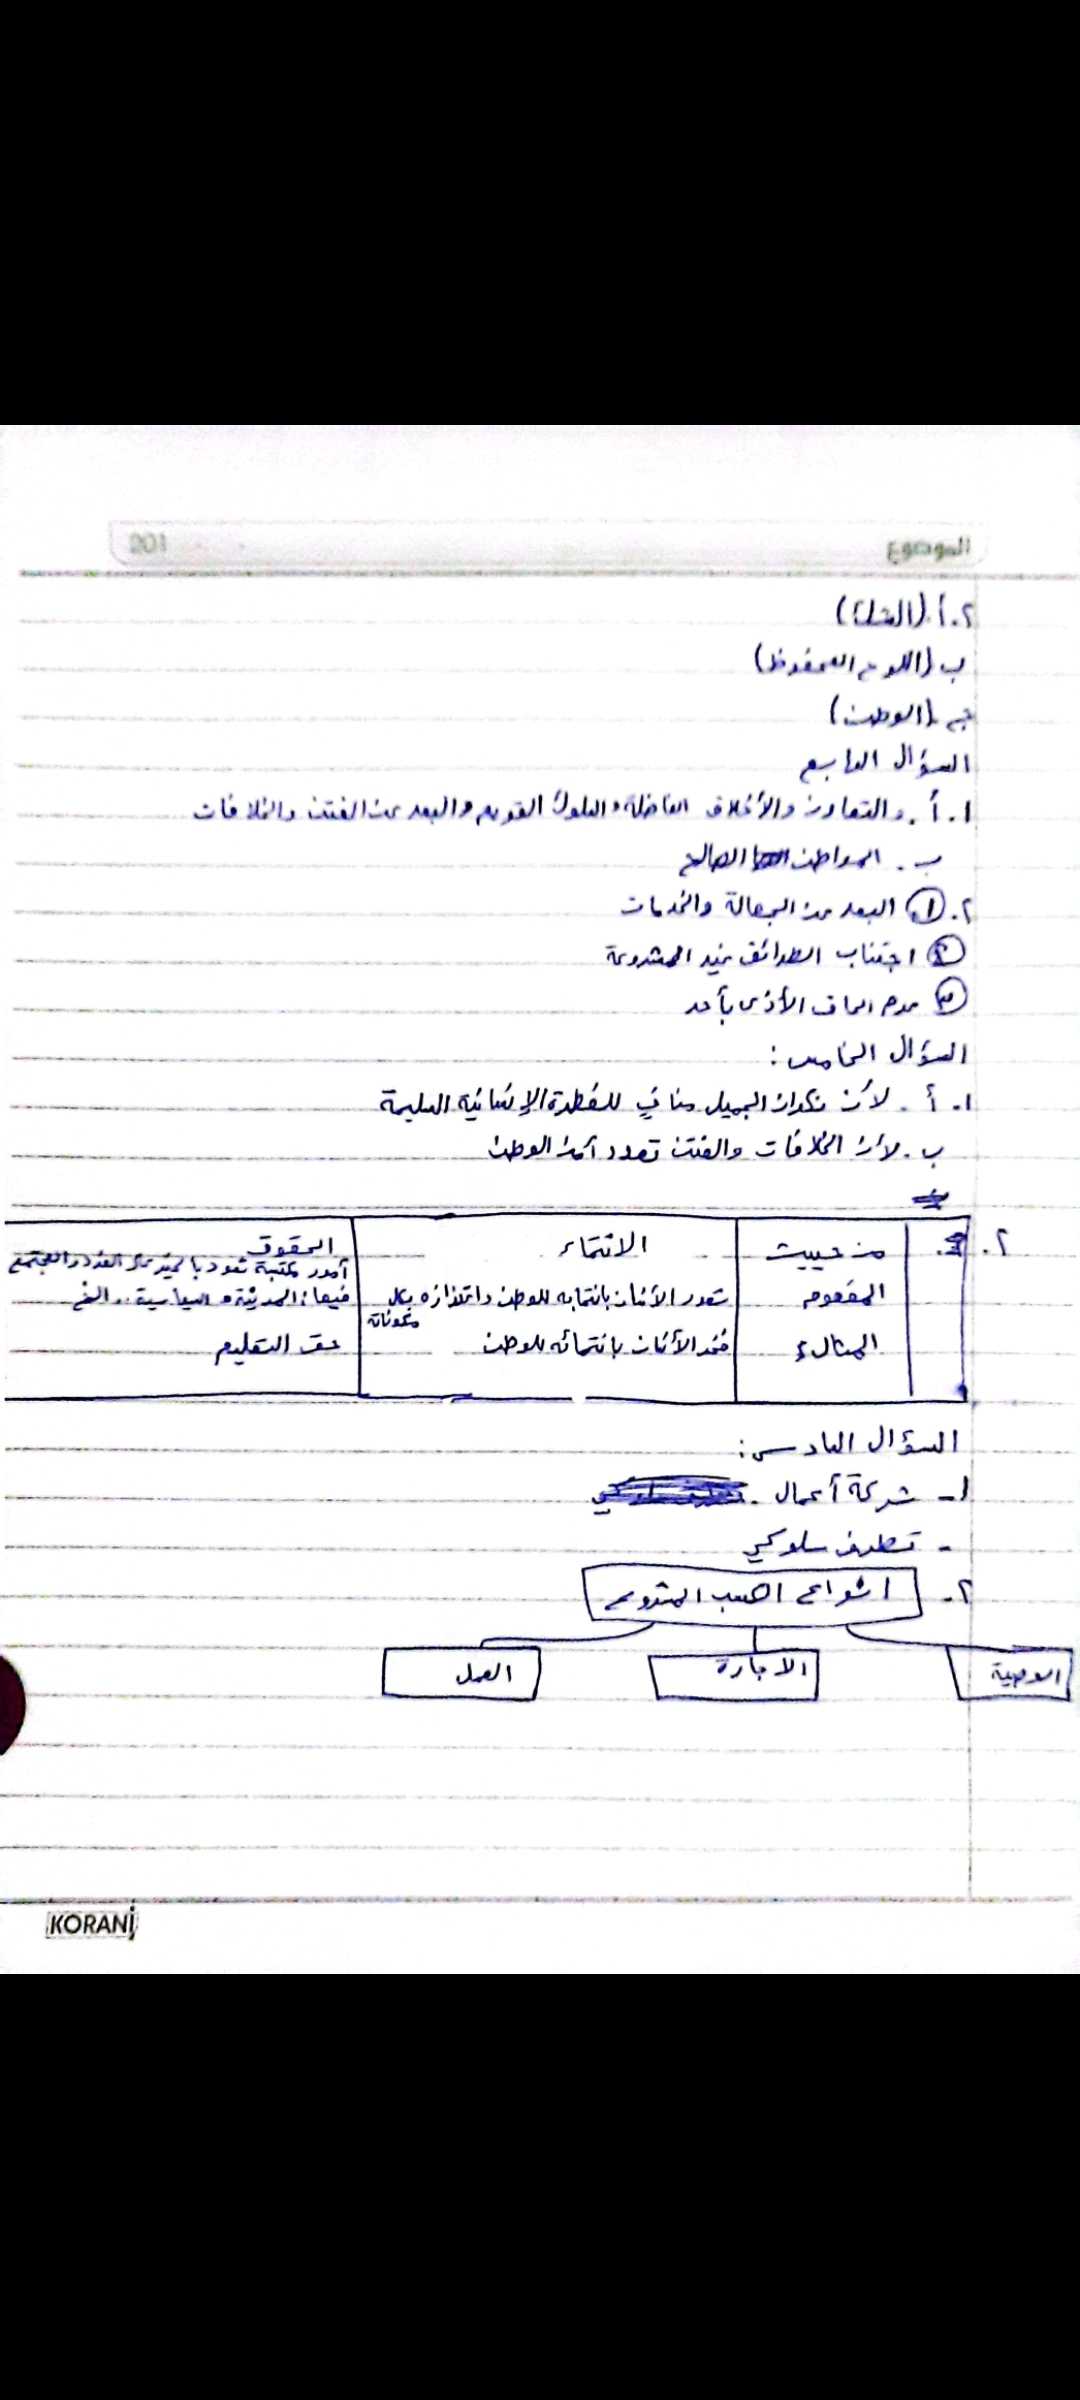 الموضوع
٢.أ.(القلم)
ب.(اللوح المحفوظ)
ج.(الوطن)
السؤال الرابع
١.أ. والتعاون والأخلاق الفاضلة والسلوك القويم والبعد عن الفتن والخلافات
ب. المواطن الصالح
٢. ① البعد عن الجهالة والخدمات
② اجتناب الطرائق غير المشروعة
③ عدم الحاق الأذى بأحد
السؤال الخامس:
١. أ. لأن نكران الجميل منافي للفطرة الإنسانية السليمة
ب. لأن الخلافات والفتن تهدد أمن الوطن
٢. من حييث الانتماء الحقوق
المفهوم شعور الأنسان بانتمائه للوطن واعتزازه بكل مكوناته أمور مكتسبة تعود بالخير على الفرد والمجتمع
فيها: المدنية والسياسية.. الخ
المثال فخر الأنسان بانتمائه للوطن حق التعليم
السؤال السادس:
١- شركة أعمال.
- تطرف سلوكي
٢- انواع الكسب المشروع
الوصية الاجارة العمل
KORANI